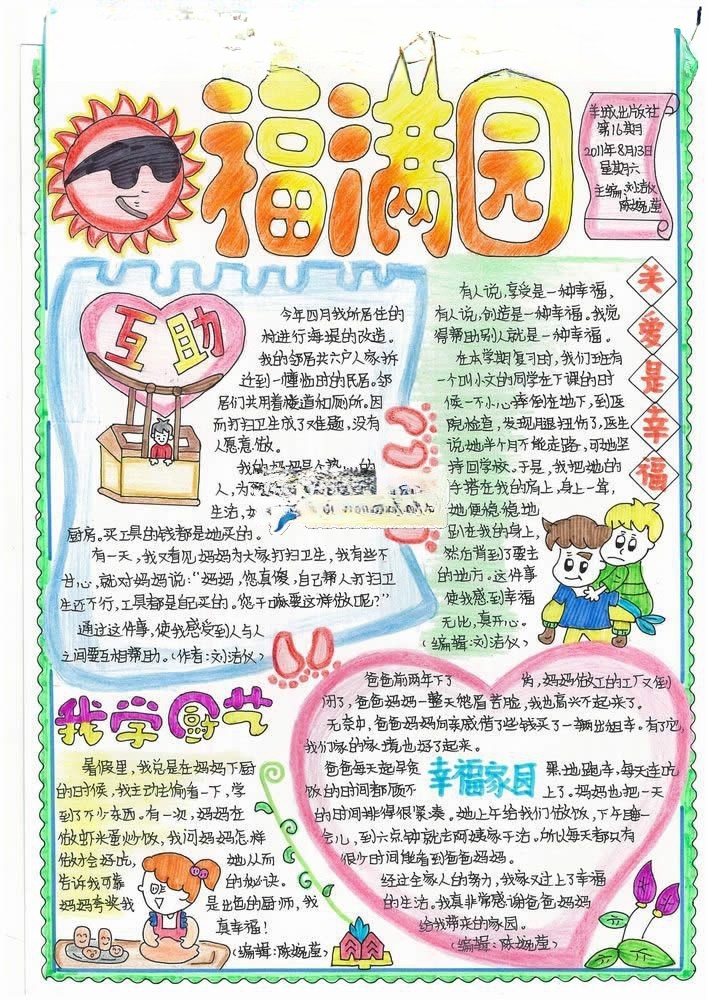 福满园
羊城出版社
第16期
2011年8月13日
星期六
主编:刘洁仪
陈婉莹
互助
今年四月我所居住的
村进行海堤的改造。
我的邻居共六户人家拆
迁到一幢临时的民居。邻
居们共用着楼道和厕所。因
而打扫卫生成了难题,没有
人愿意做。
我的妈妈是个热 的
人,为
生活,
厨房。买工具的钱都是她买的。
有一天,我又看见妈妈为大家打扫卫生,我有些不
甘心,就对妈妈说:“妈妈,您真傻,自己帮人打扫卫
生还不行,工具都是自己买的。您干嘛要这样做呢?”
通过这件事,使我感受到人与人
之间要互相帮助。(作者:刘洁仪)
关爱是幸福
有人说,享受是一种幸福,
有人说,创造是一种幸福。我觉
得帮助别人就是一种幸福。
在本学期复习时,我们班有
一个叫小文的同学在下课的时
候一不小心摔倒在地下,到医
院检查,发现腿扭伤了,医生
说她半个月不能走路,可她坚
持回学校。于是,我把她的
手搭在我的肩上,身上一耸,
她便慢慢地
趴在我的身上,
然后背到了要去
的地方。这件事
使我感到幸福
无比,真开心。
(编辑:刘洁仪)
我学厨艺
暑假里,我总是在妈妈下厨
的时候,我主动去偷看一下,学
到了不少东西。有一次,妈妈在
做虾米蛋炒饭,我问妈妈怎样
做才会好吃, 她从而
告诉我可靠 的秘诀。
妈妈夸奖我 是出色的厨师,我
真幸福!
(编辑:陈婉莹)
幸福家园
爸爸前两年下了 岗,妈妈做工的工厂又倒
闭了,爸爸妈妈一整天愁眉苦脸,我也高兴不起来了。
无奈中,爸爸妈妈向亲戚借了些钱买了一辆出租车。有了它,
我们家的家境也好了起来。
爸爸每天起早贪 黑地跑车,每天连吃
饭的时间都顾不 上了。妈妈也把一天
的时间排得很紧凑。她上午给我们做饭,下午睡一
会儿,到六点钟就去阿姨家干活。所以每天都只有
很少时间能看到爸爸妈妈。
经过全家人的努力,我家又过上了幸福
的生活。我真非常感谢爸爸妈妈
给我带来的家园。
(编辑:陈婉莹)